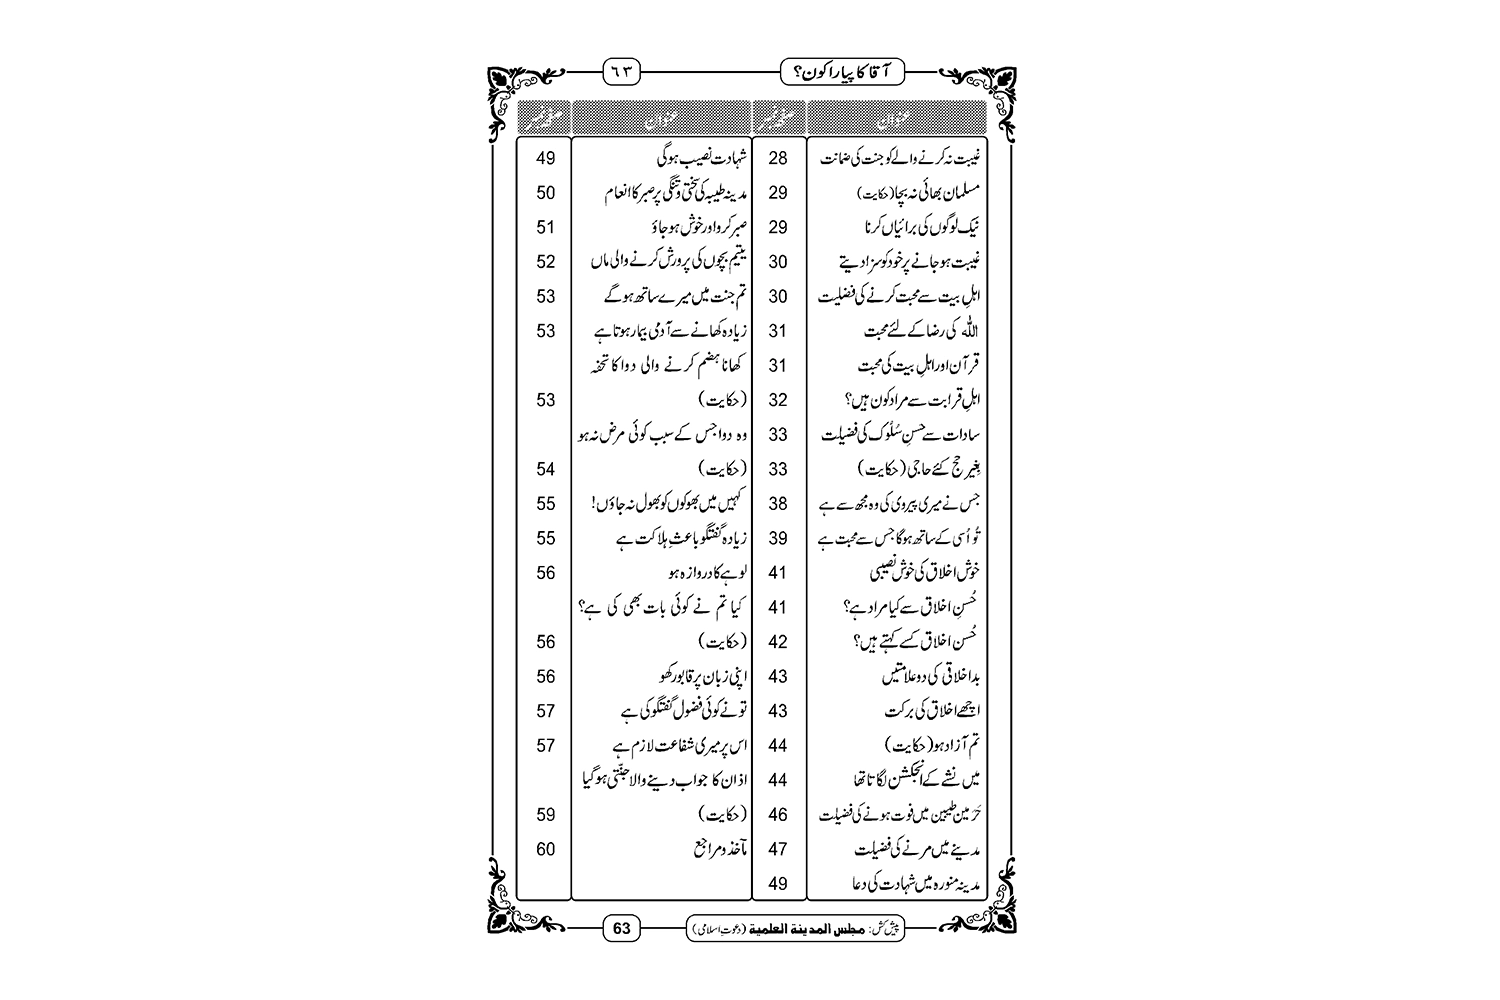 آقا کا پیارا کون؟
٦٣
عنوان صفحہ نمبر عنوان صفحہ نمبر
غیبت نہ کرنے والے کو جنت کی ضمانت 28
مسلمان بھائی نہ بچا (حکایت) 29
نیک لوگوں کی برائیاں کرنا 29
غیبت ہو جانے پر خود کو سزا دیتے 30
اہلِ بیت سے محبت کرنے کی فضلیت 30
اللّٰہ کی رضا کے لئے محبت 31
قرآن اور اہلِ بیت کی محبت 31
اہلِ قرابت سے مراد کون ہیں؟ 32
سادات سے حسنِ سُلوک کی فضیلت 33
بِغیر حج کئے حاجی (حکایت) 33
جس نے میری پیروی کی وہ مجھ سے ہے 38
تُو اُسی کے ساتھ ہوگا جس سے محبت ہے 39
خوش اخلاق کی خوش نصیبی 41
حُسنِ اخلاق سے کیا مراد ہے؟ 41
حُسن اخلاق کسے کہتے ہیں؟ 42
بداخلاقی کی دو علامتیں 43
اچھے اخلاق کی برکت 43
تم آزاد ہو (حکایت) 44
میں نشے کے انجکشن لگاتا تھا 44
حَرَمین طیبین میں فوت ہونے کی فضیلت 46
مدینے میں مرنے کی فضیلت 47
مدینہ منورہ میں شہادت کی دعا 49
شہادت نصیب ہوگی 49
مدینہ طیبہ کی سختی و تنگی پر صبر کا انعام 50
صبر کرو اور خوش ہو جاؤ 51
یتیم بچوں کی پرورش کرنے والی ماں 52
تم جنت میں میرے ساتھ ہوگے 53
زیادہ کھانے سے آدمی بیمار ہوتا ہے 53
کھانا ہضم کرنے والی دوا کا تحفہ
(حکایت) 53
وہ دوا جس کے سبب کوئی مرض نہ ہو
(حکایت) 54
کہیں میں بھوکوں کو بھول نہ جاؤں! 55
زیادہ گفتگو باعثِ ہلاکت ہے 55
لوہے کا دروازہ ہو 56
کیا تم نے کوئی بات بھی کی ہے؟
(حکایت) 56
اپنی زبان پر قابو رکھو 56
تو نے کوئی فضول گفتگو کی ہے 57
اس پر میری شفاعت لازم ہے 57
اذان کا جواب دینے والا جنّتی ہوگیا
(حکایت) 59
مآخذ و مراجع 60
پیش کش: مجلس المدینة العلمیة (دعوتِ اسلامی)
63